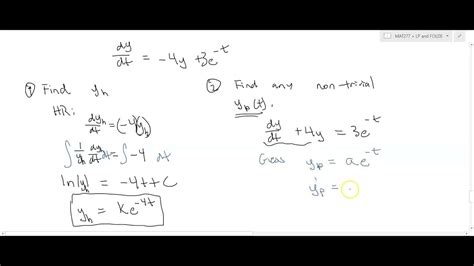 MAT277 + LP and FOLDE
dy/dt = -4y + 3e^{-t}
① Find y_h
HR:
dy_h/dt = (-4)(y_h)
∫ 1/y_h dy_h/dt dt = ∫ -4 dt
ln|y| = -4t + C
y_h = Ke^{-4t}
② Find any non-trivial
y_p(t).
dy/dt + 4y = 3e^{-t}
Guess y_p = ae^{-t}
y_p' =